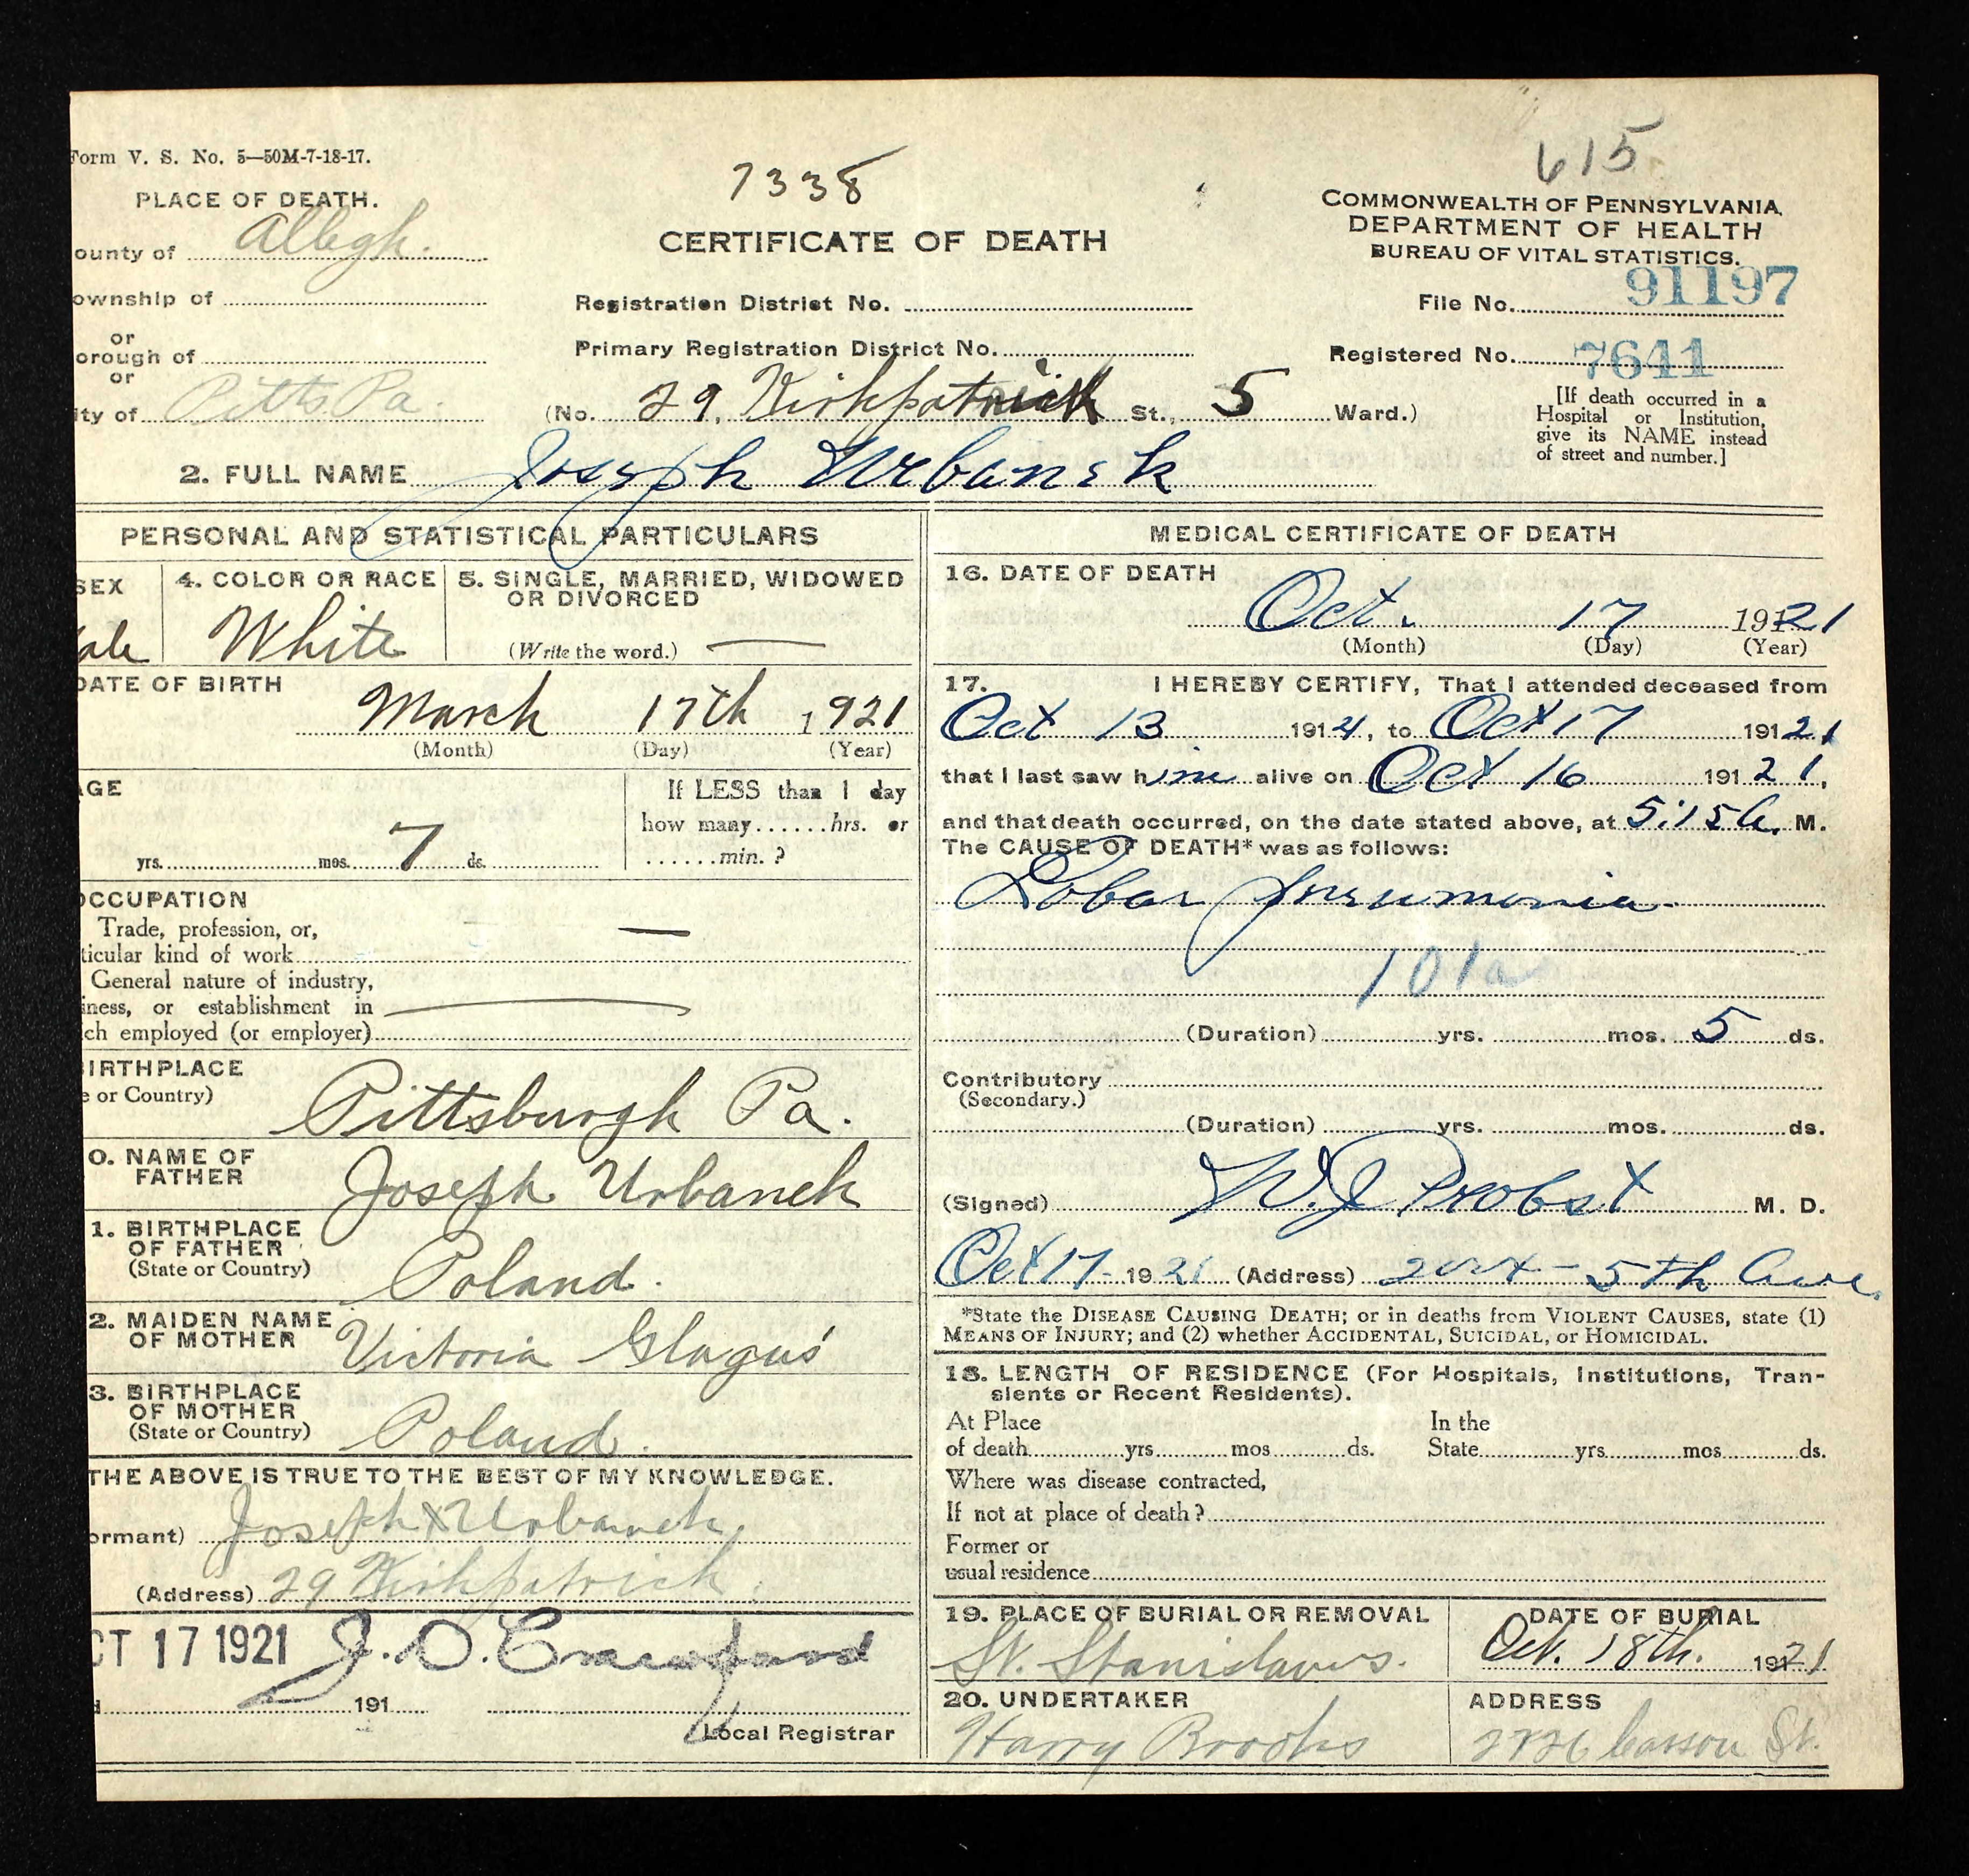 Form V. S. No. 5—50M-7-18-17.
7338
615
PLACE OF DEATH.
ounty of Allegh.
ownship of
or
orough of
or
ity of Pitts Pa.
CERTIFICATE OF DEATH
Registration District No.
Primary Registration District No.
(No. 29, Kirkpatrick St., 5 Ward.)
COMMONWEALTH OF PENNSYLVANIA
DEPARTMENT OF HEALTH
BUREAU OF VITAL STATISTICS.
File No. 91197
Registered No. 7641
[If death occurred in a
Hospital or Institution,
give its NAME instead
of street and number.]
2. FULL NAME Joseph Urbanek
PERSONAL AND STATISTICAL PARTICULARS
SEX
ale
4. COLOR OR RACE
White
5. SINGLE, MARRIED, WIDOWED
OR DIVORCED
(Write the word.) —
DATE OF BIRTH
March 17th 1921
(Month) (Day) (Year)
AGE
yrs. mos. 7 ds.
If LESS than 1 day
how many......hrs. or
......min. ?
OCCUPATION
Trade, profession, or,
ticular kind of work —
General nature of industry,
iness, or establishment in
ch employed (or employer) —
BIRTHPLACE
e or Country)
Pittsburgh Pa.
0. NAME OF
FATHER
Joseph Urbanek
1. BIRTHPLACE
OF FATHER
(State or Country)
Poland.
2. MAIDEN NAME
OF MOTHER
Victoria Glagus
3. BIRTHPLACE
OF MOTHER
(State or Country)
Poland.
THE ABOVE IS TRUE TO THE BEST OF MY KNOWLEDGE.
ormant) Joseph X Urbanek
(Address) 29 Kirkpatrick.
CT 17 1921 J. O. Crawford
191
Local Registrar
MEDICAL CERTIFICATE OF DEATH
16. DATE OF DEATH
Oct. 17 1921
(Month) (Day) (Year)
17. I HEREBY CERTIFY, That I attended deceased from
Oct 13 191, to Oct 17 19121
that I last saw him alive on Oct 16 19121,
and that death occurred, on the date stated above, at 5:15 A. M.
The CAUSE OF DEATH* was as follows:
Lobar pneumonia
101a
(Duration) yrs. mos. 5 ds.
Contributory
(Secondary.)
(Duration) yrs. mos. ds.
(Signed) W. J. Probst M. D.
Oct 17 1921 (Address) 5th Ave.
*State the DISEASE CAUSING DEATH; or in deaths from VIOLENT CAUSES, state (1)
MEANS OF INJURY; and (2) whether ACCIDENTAL, SUICIDAL, or HOMICIDAL.
18. LENGTH OF RESIDENCE (For Hospitals, Institutions, Tran-
sients or Recent Residents).
At Place
of death yrs mos ds.
In the
State yrs mos ds.
Where was disease contracted,
If not at place of death?
Former or
usual residence
19. PLACE OF BURIAL OR REMOVAL
St. Stanislaus.
DATE OF BURIAL
Oct. 18th. 1921
20. UNDERTAKER
Harry Brooks
ADDRESS
Carson St.